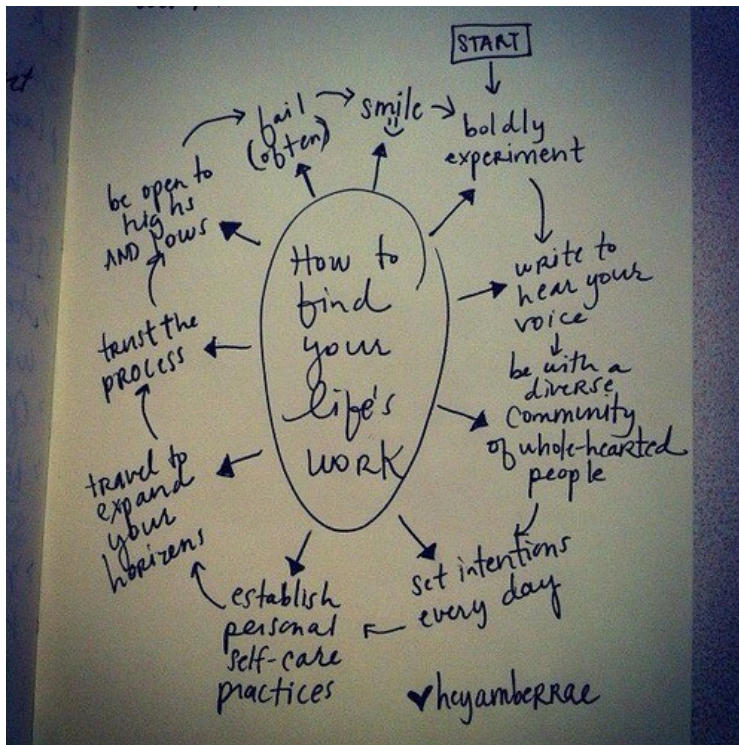 START
boldly
experiment
write to
hear your
voice
be with a
diverse
community
of whole-hearted
people
set intentions
every day
establish
personal
self-care
practices
travel to
expand
your
horizens
trust the
PROCESS
be open to
highs
AND lows
fail
(often)
smile
How to
find
your
life's
WORK
♥heyamberrae